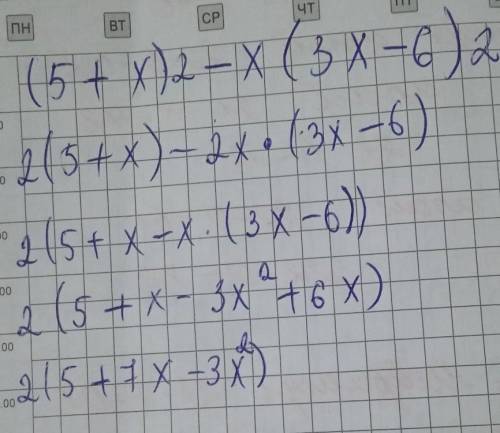 ПН ВТ СР ЧТ
(5 + x)2 - x(3x - 6)2
2(5 + x) - 2x · (3x - 6)
2(5 + x - x · (3x - 6))
2(5 + x - 3x² + 6x)
2(5 + 7x - 3x²)